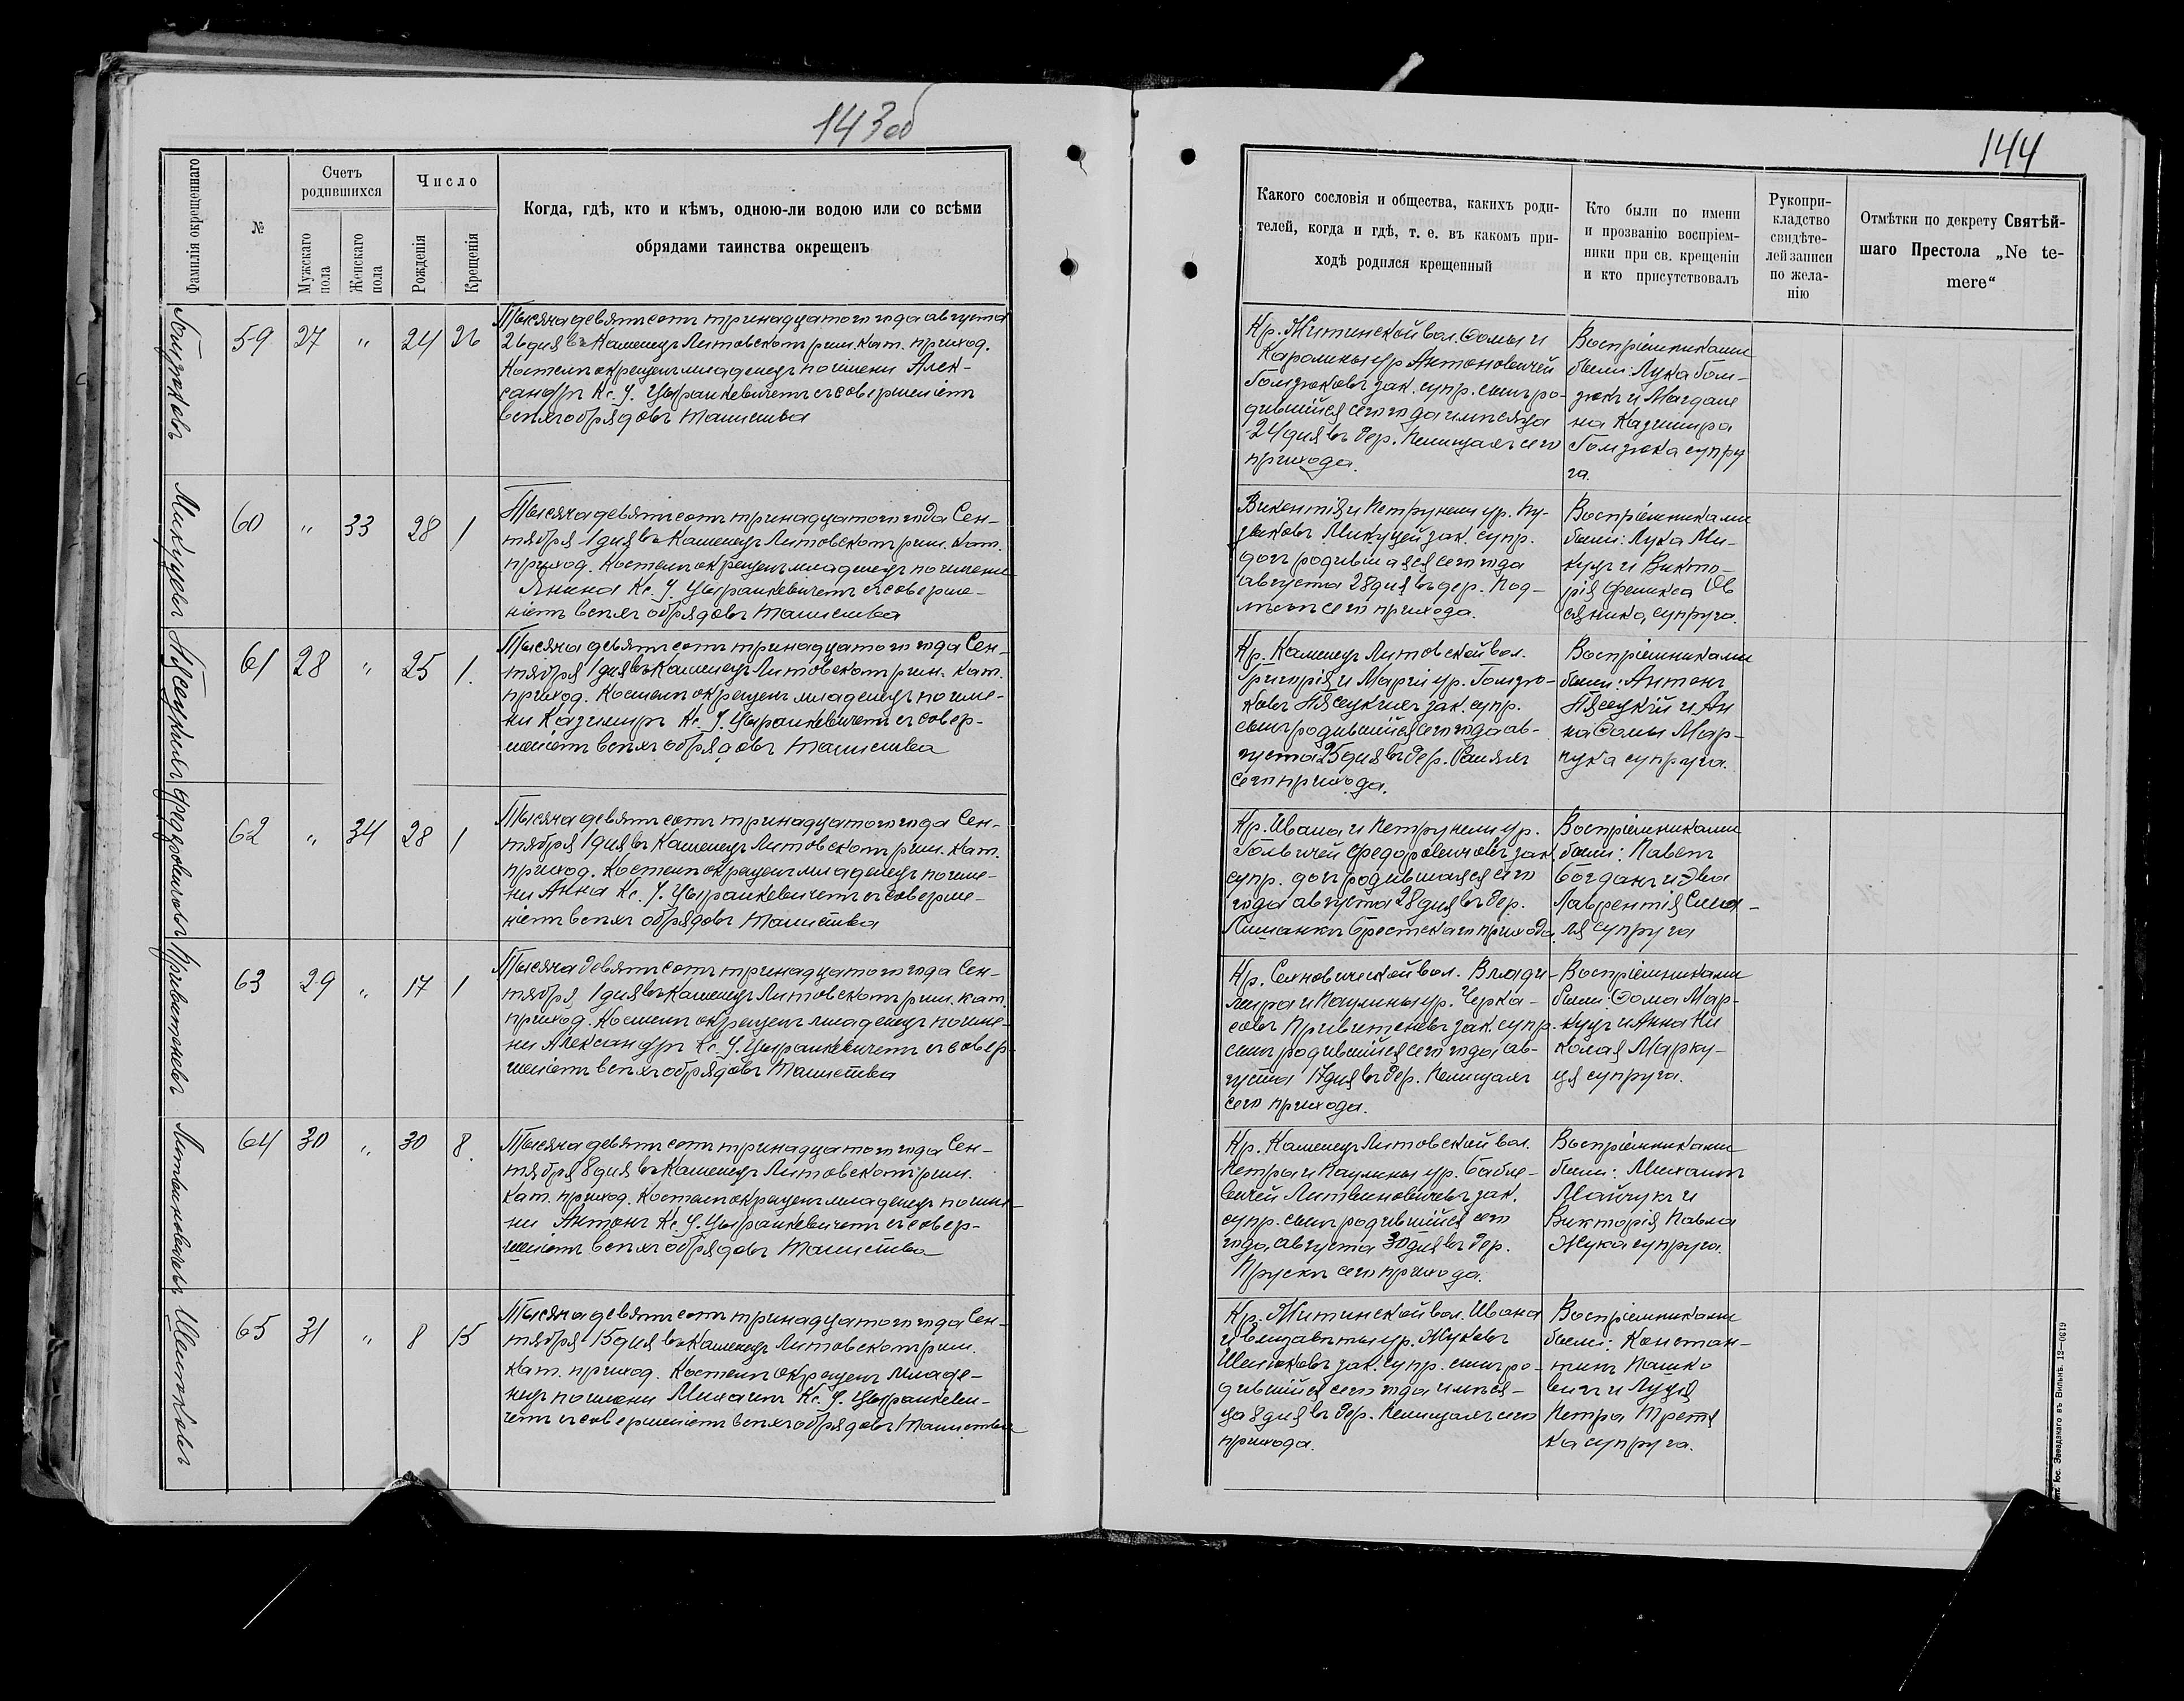 143об
Фамилія окрещеннаго
№
Счетъ
родившихся
Мужскаго
пола
Женскаго
пола
Число
Рожденія
Крещенія
Когда, гдѣ, кто и кѣмъ, одною-ли водою или со всѣми
обрядами таинства окрещенъ
Гомзюковъ
59 27 " 24 26
Тысяча девятьсотъ тринадцатого года августа
26 дня въ Каменецъ Литовскомъ рим. кат. приход.
Костелѣ окрещенъ младенецъ по имени Алек-
сандръ Кс. У. Цыранкевичемъ съ совершеніемъ
всѣхъ обрядовъ таинства
Микуцевъ
60 " 33 28 1
Тысяча девятьсотъ тринадцатого года Сен-
тября 1 дня въ Каменецъ Литовскомъ рим. кат.
приход. Костелѣ окрещенъ младенецъ по имени
Янина Кс. У. Цыранкевичемъ съ соверше-
ніемъ всѣхъ обрядовъ таинства
Пясецкихъ
61 28 " 25 1.
Тысяча девятьсотъ тринадцатого года Сен-
тября 1 дня въ Каменецъ Литовскомъ рим. кат.
приход. Костелѣ окрещенъ младенецъ по име-
ни Казимиръ Кс. У. Цыранкевичемъ съ совер-
шеніемъ всѣхъ обрядовъ таинства
Федоровичовъ
62 " 34 28 1
Тысяча девятьсотъ тринадцатого года Сен-
тября 1 дня въ Каменецъ Литовскомъ рим. кат.
приход. Костелѣ окрещенъ младенецъ по име-
ни Анна Кс. У. Цыранкевичемъ съ соверше-
ніемъ всѣхъ обрядовъ таинства
Привитковъ
63 29 " 17 1
Тысяча девятьсотъ тринадцатого года Сен-
тября 1 дня въ Каменецъ Литовскомъ рим. кат.
приход. Костелѣ окрещенъ младенецъ по име-
ни Александръ Кс. У. Цыранкевичемъ съ совер-
шеніемъ всѣхъ обрядовъ таинства
Литвиновичевъ
64 30 " 30 8.
Тысяча девятьсотъ тринадцатого года Сен-
тября 8 дня въ Каменецъ Литовскомъ рим.
кат. приход. Костелѣ окрещенъ младенецъ по име-
ни Антонъ Кс. У. Цыранкевичемъ съ совер-
шеніемъ всѣхъ обрядовъ таинства
65 31 " 8 15
Тысяча девятьсотъ тринадцатого года Сен-
тября 15 дня въ Каменецъ Литовскомъ рим.
кат. приход. Костелѣ окрещенъ младе-
нецъ по имени Михаилъ Кс. У. Цыранкеви-
чемъ съ совершеніемъ всѣхъ обрядовъ таинства
144
Какого сословія и общества, какихъ роди-
телей, когда и гдѣ, т. е. въ какомъ при-
ходѣ родился крещенный
Кто были по имени
и прозванію воспріем-
ники при св. крещеніи
и кто присутствовалъ
Рукопри-
кладство
свидѣте-
лей записи
по жела-
нію
Отмѣтки по декрету Святѣй-
шаго Престола „Ne te-
mere“
Кр. Митинской вол. Ѳомы и
Каролины ур. Антоновичей
Гомзюковъ зак. супр. сынъ ро-
дившійся сего года и мѣсяца
24 дня въ дер. Пелищахъ сего
прихода.
Воспріемниками
были: Лука Гом-
зюкъ и Магдале
на Казимира
Гомзюка супру
га.
Викентія и Петрунели ур. Пу-
Микуцей зак. супр.
дочь родившаяся сего года
августа 28 дня въ дер. Под-
сего прихода.
Воспріемниками
были: Лука Ми-
куцъ и Викто-
рія Феликса Ов
сяника супруга.
Кр. Каменецъ Литовской вол.
Григорія и Маріи ур. Гомзю-
ковъ Пясецкихъ зак. супр.
сынъ родившійся сего года ав-
густа 25 дня въ дер.
сего прихода.
Воспріемниками
были: Антонъ
Пясецкій и Ан
на Ѳомы Мар-
супруга.
Кр. Ивана и Петрунели ур.
Федоровичовъ зак.
супр. дочь родившаяся сего
года августа 28 дня въ дер.
Брестскаго прихода.
Воспріемниками
были: Павелъ
Богданъ и Эва
Лаврентія
супруга
Кр. вол. Влади-
мира и Паулины ур. Черка-
совъ Привитковъ зак. супр.
сынъ родившійся сего года ав-
густа 17 дня въ дер. Пелищахъ
сего прихода.
Воспріемниками
были: Ѳома Мар-
куцъ и Анна Ни
колая Марку-
ця супруга.
Кр. Каменецъ Литовской вол.
Петра и Паулины ур. Бабке-
вичей Литвиновичевъ зак.
супр. сынъ родившійся сего
года августа 30 дня въ дер.
Пруски сего прихода.
Воспріемниками
были: Михаилъ
Майчукъ и
Викторія Павла
Жука супруга.
Кр. Митинской вол. Ивана
и Елизаветы ур. Жуковъ
зак. супр. сынъ ро-
дившійся сего года и мѣся-
ца 8 дня въ дер. Пелищахъ сего
прихода.
Воспріемниками
были: Констан-
тинъ Пашко
вичъ и Луція
Петра Третя
ка супруга.
Тип. Іос. Завадзкаго въ Вильнѣ. 12—0619